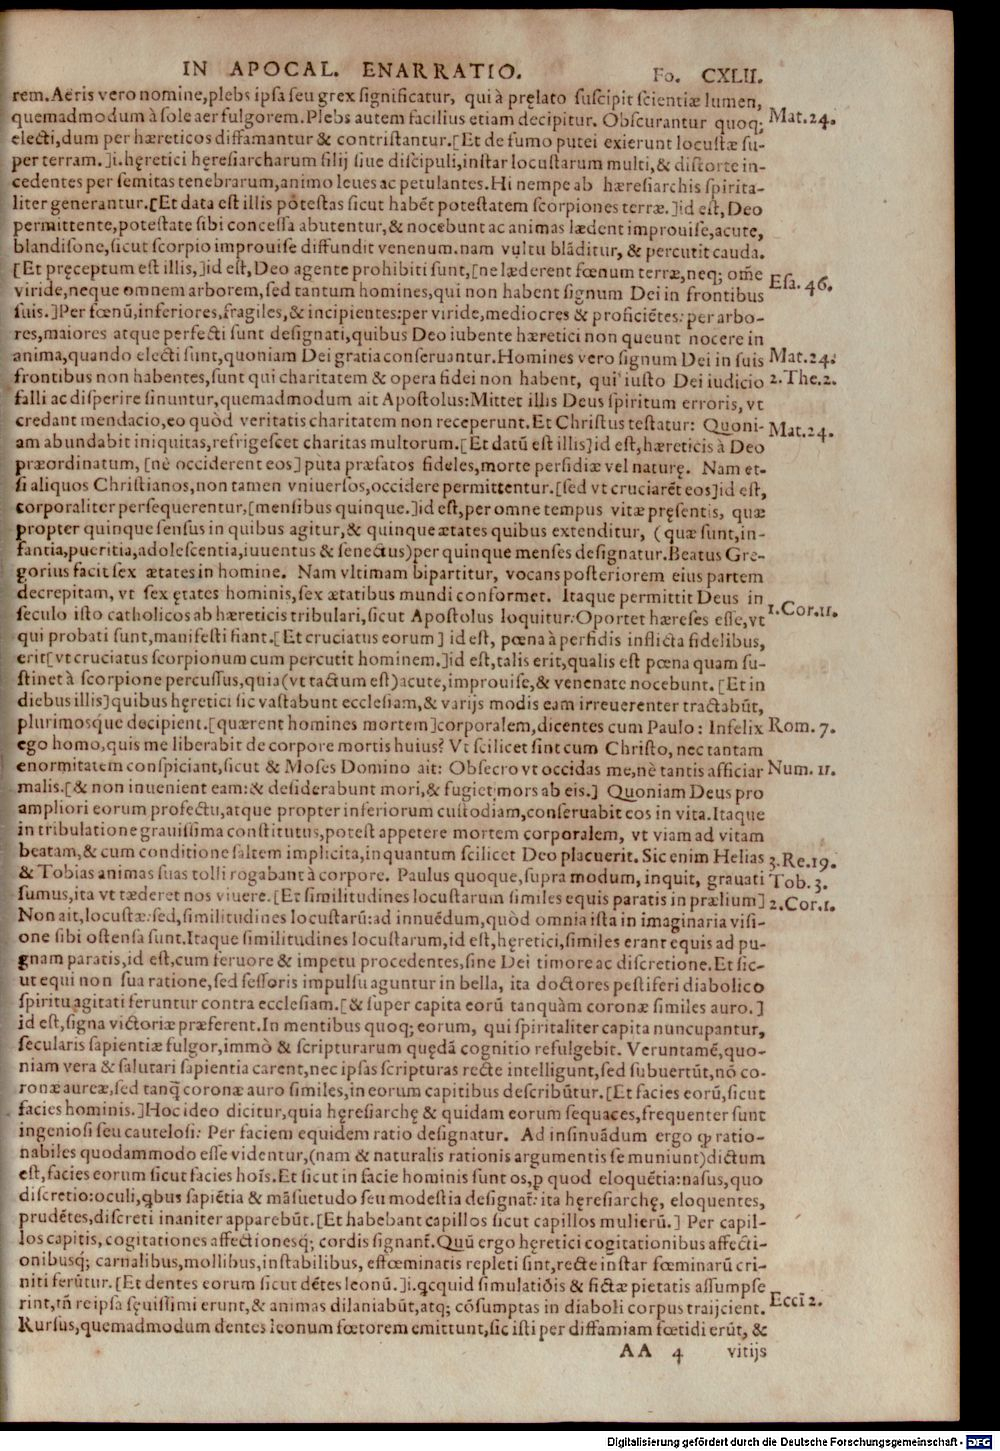 IN APOCAL. ENARRATIO. Fo. CXLII.
rem. Aëris vero nomine, plebs ipsa seu grex significatur, qui à pręlato suscipit scientiæ lumen,
quemadmodum à sole aer fulgorem. Plebs autem facilius etiam decipitur. Obscurantur quoq; Mat. 24.
electi, dum per hæreticos diffamantur & contristantur. [Et de fumo putei exierunt locustæ su-
per terram.] i. hęretici hęresiarcharum filij siue discipuli, instar locustarum multi, & distorte in-
cedentes per semitas tenebrarum, animo leues ac petulantes. Hi nempe ab hæresiarchis spirita-
liter generantur. [Et data est illis potestas sicut habēt potestatem scorpiones terræ.] id est, Deo
permittente, potestate sibi concessa abutentur, & nocebunt ac animas lædent improuise, acute,
blandisone, sicut scorpio improuise diffundit venenum. nam vultu blāditur, & percutit cauda.
[Et pręceptum est illis,] id est, Deo agente prohibiti sunt, [ne læderent fœnum terræ, neq; om̄e
viride, neque omnem arborem, sed tantum homines, qui non habent signum Dei in frontibus Esa. 46.
suis.] Per fœnū, inferiores, fragiles, & incipientes: per viride, mediocres & proficiētes: per arbo-
res, maiores atque perfecti sunt designati, quibus Deo iubente hæretici non queunt nocere in
anima, quando electi sunt, quoniam Dei gratia conseruantur. Homines vero signum Dei in suis Mat. 24.
frontibus non habentes, sunt qui charitatem & opera fidei non habent, qui iusto Dei iudicio 2. The. 2.
falli ac disperire sinuntur, quemadmodum ait Apostolus: Mittet illis Deus spiritum erroris, vt
credant mendacio, eo quòd veritatis charitatem non receperunt. Et Christus testatur: Quoni- Mat. 24.
am abundabit iniquitas, refrigescet charitas multorum. [Et datū est illis] id est, hæreticis à Deo
præordinatum, [nè occiderent eos] puta præfatos fideles, morte perfidiæ vel naturę. Nam et-
si aliquos Christianos, non tamen vniuersos, occidere permittentur. [sed vt cruciarēt eos] id est,
corporaliter persequerentur, [mensibus quinque.] id est, per omne tempus vitæ pręsentis, quæ
propter quinque sensus in quibus agitur, & quinque ætates quibus extenditur, (quæ sunt, in-
fantia, pueritia, adolescentia, iuuentus & senectus) per quinque menses designatur. Beatus Gre-
gorius facit sex ætates in homine. Nam vltimam bipartitur, vocans posteriorem eius partem
decrepitam, vt sex ętates hominis, sex ætatibus mundi conformet. Itaque permittit Deus in
seculo isto catholicos ab hæreticis tribulari, sicut Apostolus loquitur: Oportet hæreses esse, vt 1. Cor. 11.
qui probati sunt, manifesti fiant. [Et cruciatus eorum] id est, pœna à perfidis inflicta fidelibus,
erit [vt cruciatus scorpionum cum percutit hominem.] id est, talis erit, qualis est pœna quam su-
stinet à scorpione percussus, quia (vt tactum est) acute, improuise, & venenate nocebunt. [Et in
diebus illis] quibus hęretici sic vastabunt ecclesiam, & varijs modis eam irreuerenter tractabūt,
plurimosque decipient. [quærent homines mortem] corporalem, dicentes cum Paulo: Infelix Rom. 7.
ego homo, quis me liberabit de corpore mortis huius? Vt scilicet sint cum Christo, nec tantam
enormitatem conspiciant, sicut & Moses Domino ait: Obsecro vt occidas me, nè tantis afficiar Num. 11.
malis. [& non inuenient eam: & desiderabunt mori, & fugiet mors ab eis.] Quoniam Deus pro
ampliori eorum profectu, atque propter inferiorum custodiam, conseruabit eos in vita. Itaque
in tribulatione grauissima constitutus, potest appetere mortem corporalem, vt viam ad vitam
beatam, & cum conditione saltem implicita, inquantum scilicet Deo placuerit. Sic enim Helias 3. Re. 19.
& Tobias animas suas tolli rogabant à corpore. Paulus quoque, supra modum, inquit, grauati Tob. 3.
sumus, ita vt tæderet nos viuere. [Et similitudines locustarum similes equis paratis in prælium] 2. Cor. 1.
Non ait, locustæ: sed, similitudines locustarū: ad innuēdum, quòd omnia ista in imaginaria visi-
one sibi ostensa sunt. Itaque similitudines locustarum, id est, hęretici, similes erant equis ad pu-
gnam paratis, id est, cum feruore & impetu procedentes, sine Dei timore ac discretione. Et sic-
ut equi non sua ratione, sed sessoris impulsu aguntur in bella, ita doctores pestiferi diabolico
spiritu agitati feruntur contra ecclesiam. [& super capita eorū tanquàm coronæ similes auro.]
id est, signa victoriæ præferent. In mentibus quoq; eorum, qui spiritaliter capita nuncupantur,
secularis sapientiæ fulgor, immò & scripturarum quędā cognitio refulgebit. Veruntamē, quo-
niam vera & salutari sapientia carent, nec ipsas scripturas recte intelligunt, sed subuertūt, nō co-
ronæ aureæ, sed tanq̄ coronæ auro similes, in eorum capitibus describūtur. [Et facies eorū, sicut
facies hominis.] Hoc ideo dicitur, quia hęresiarchę & quidam eorum sequaces, frequenter sunt
ingeniosi seu cautelosi: Per faciem equidem ratio designatur. Ad insinuādum ergo ꝙ ratio-
nabiles quodammodo esse videntur, (nam & naturalis rationis argumentis se muniunt) dictum
est, facies eorum sicut facies hoīs. Et sicut in facie hominis sunt os, ꝑ quod eloquētia: nasus, quo
discretio: oculi, q̄bus sapiētia & māsuetudo seu modestia designat̄: ita hęresiarchę, eloquentes,
prudētes, discreti inaniter apparebūt. [Et habebant capillos sicut capillos mulierū.] Per capil-
los capitis, cogitationes affectionesq́; cordis signant̄. Quū ergo hęretici cogitationibus affecti-
onibusq́; carnalibus, mollibus, instabilibus, effœminatis repleti sint, recte instar fœminarū cri-
niti ferūtur. [Et dentes eorum sicut dētes leonū.] i. q̄cquid simulatiōis & fictæ pietatis assumpse
rint, tn̄ reipsa sęuissimi erunt, & animas dilaniabūt, atq; cōsumptas in diaboli corpus traijcient. Eccī 2.
Rursus, quemadmodum dentes leonum fœtorem emittunt, sic isti per diffamiam fœtidi erūt, &
AA 4 vitijs
Digitalisierung gefördert durch die Deutsche Forschungsgemeinschaft - DFG